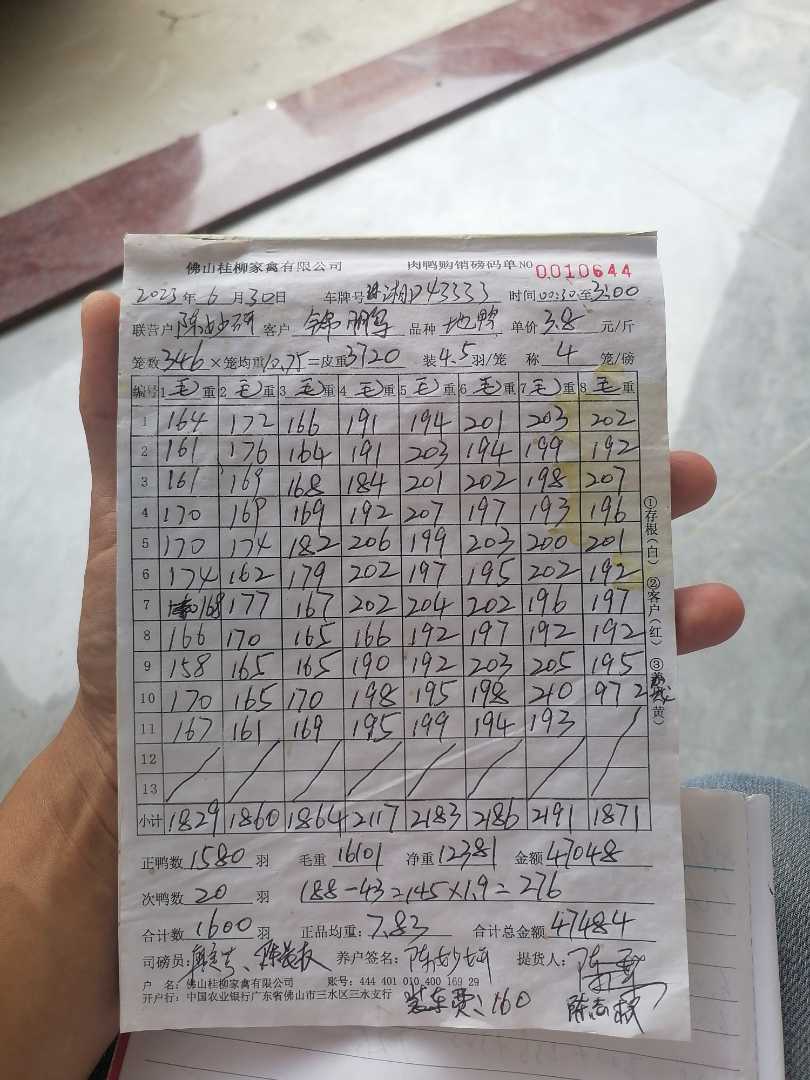 佛山桂柳家禽有限公司 肉鸭购销磅码单 NO 0010644
2023年6月30日 车牌号 湘D43333 时间00:30至3:00
联营户 客户 品种 地鸭 单价 3.8 元/斤
笼数346×笼均重10.75=皮重3720 装4.5羽/笼 称 4 笼/磅
编号 1毛重 2毛重 3毛重 4毛重 5毛重 6毛重 7毛重 8毛重
1 164 172 166 191 194 201 203 202
2 161 176 164 191 203 194 199 192
3 161 169 168 184 201 202 198 207
4 170 169 169 192 207 197 193 196
5 170 174 182 206 199 203 200 201
6 174 162 179 202 197 195 202 192
7 168 177 167 202 204 202 196 197
8 166 170 165 166 192 197 192 192
9 158 165 165 190 192 203 205 195
10 170 165 170 198 195 198 210 97 2
11 167 161 169 195 199 194 193
12
13
小计 1829 1860 1864 2117 2183 2186 2191 1871
正鸭数 1580 羽 毛重 16101 净重 12381 金额 47048
次鸭数 20 羽 188-43=145×1.9=276
合计数 1600 羽 正品均重: 7.83 合计总金额 47484
司磅员: 养户签名: 提货人:
户 名: 佛山桂柳家禽有限公司 账号: 444 401 010 400 169 29
开户行: 中国农业银行广东省佛山市三水区三水支行 装车费: 160
①存根(白) ②客户(红) ③ (黄)